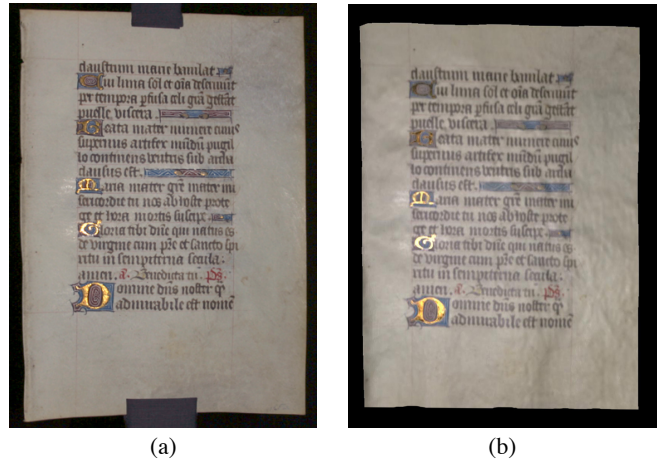 claustrum marie baiulat
Cui luna sol et oīa deseruiunt
per tempora pfusa celi grā gestāt
puelle viscera
Beata mater munere cuius
supernus artifex mūdū pugil
lo continens ventris sub archa
clausus est.
Maria mater grē mater mi
sericordie tu nos ab hoste prote
ge et hora mortis suscipe
Gloria tibi dñe qui natus es
de virgine cum pře et sancto spi
ritu in sempiterna secula.
amen. a. Benedicta tu. Ps.
Domine dñs noster q̄
admirabile est nomē
(a)
claustrum marie baiulat
Cui luna sol et oīa deseruiunt
per tempora pfusa celi grā gestāt
puelle viscera
Beata mater munere cuius
supernus artifex mūdū pugil
lo continens ventris sub archa
clausus est.
Maria mater grē mater mi
sericordie tu nos ab hoste prote
ge et hora mortis suscipe
Gloria tibi dñe qui natus es
de virgine cum pře et sancto spi
ritu in sempiterna secula.
amen. a. Benedicta tu. Ps.
Domine dñs noster q̄
admirabile est nomē
(b)